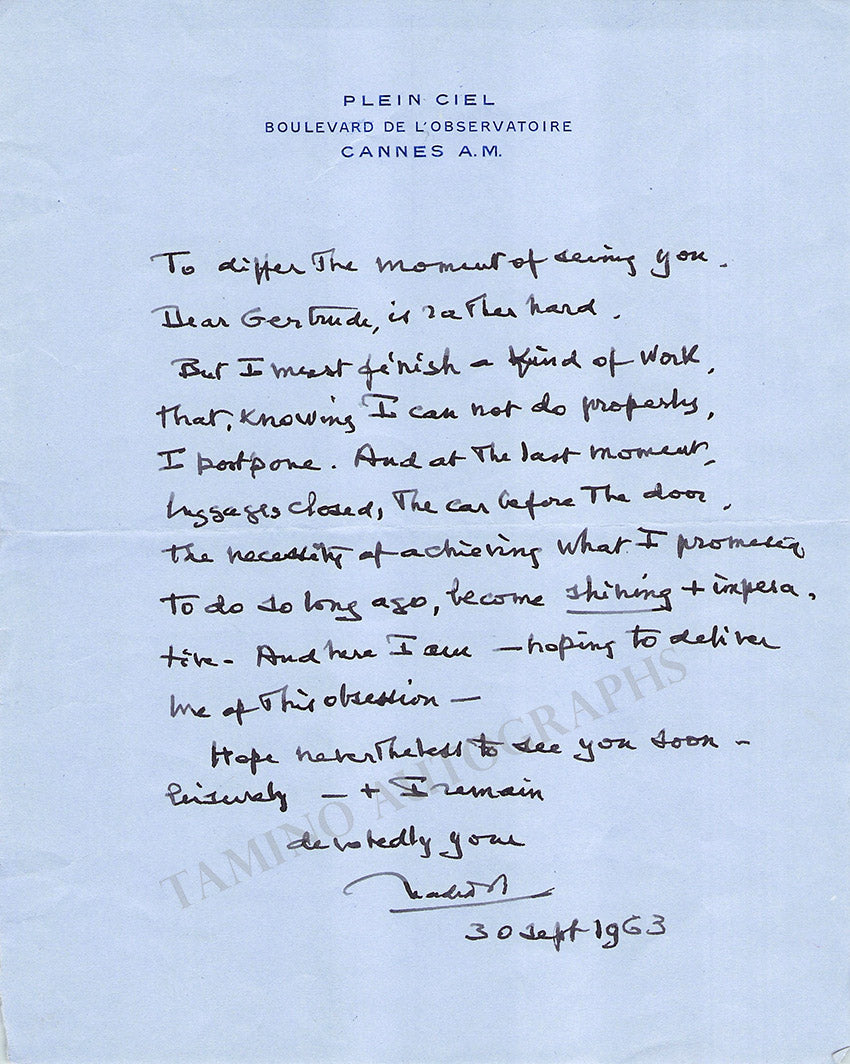 PLEIN CIEL
BOULEVARD DE L'OBSERVATOIRE
CANNES A.M.
To differ The moment of seeing you.
Dear Gertrude, is rather hard.
But I must finish a kind of work,
that, knowing I can not do properly,
I postpone. And at The last moment,
luggages closed, The car before The door,
the necessity of achieving what I promised
to do so long ago, become shining + impera.
tive - And here I am — hoping to deliver
me of This obsession —
Hope nevertheless to see you soon -
leisurely — + I remain
devotedly your
30 sept 1963
TAMINO AUTOGRAPHS